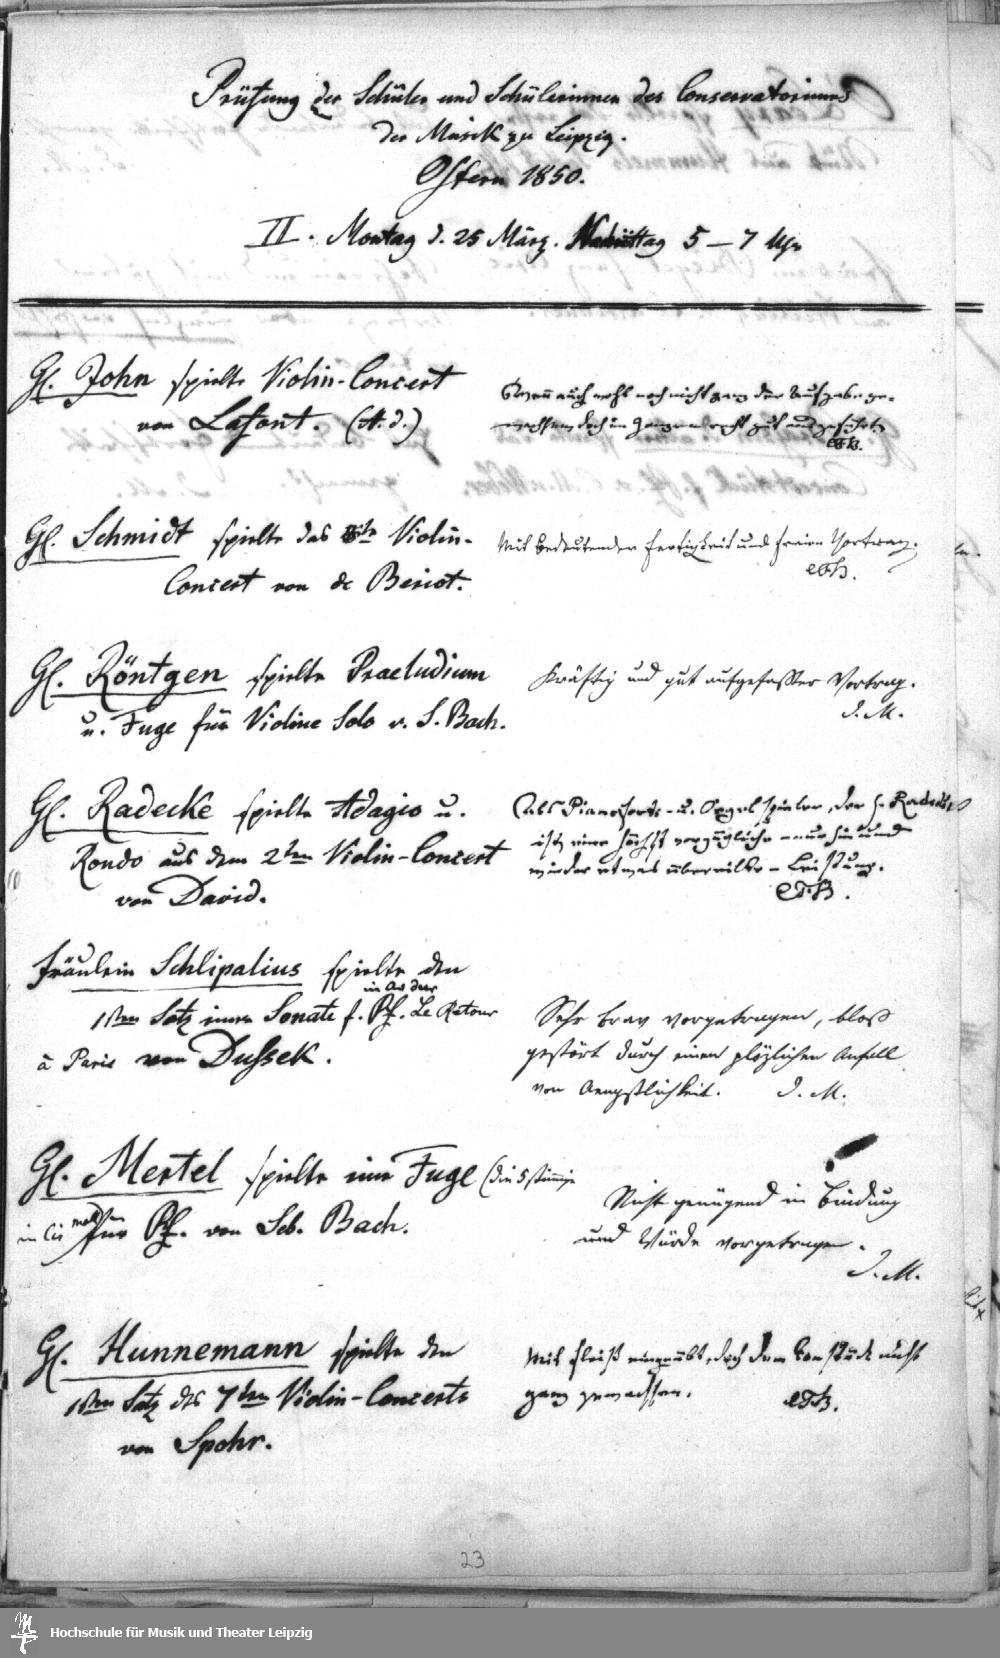 Prüfung der Schüler und Schülerinnen des Conservatoriums
der Musik zu Leipzig.
Ostern 1850.
II. Montag d. 25 März. Nachmittag 5 – 7 Uhr
H. John spielte Violin-Concert
von Lafont. (A. d.)
Wenn auch wohl noch nicht ganz der Aufgabe ge-
wachsen, doch im Ganzen recht gut ausgeführt.
H. Schmidt spielte das Violin-
Concert von de Beriot.
Mit bedeutender Fertigkeit und freien Vortrag.
H. Röntgen spielte Praeludium
u. Fuge für Violine Solo v. S. Bach.
Kräftig und gut aufgefaßter Vortrag.
I. M.
H. Radecke spielte Adagio u.
Rondo aus dem 2ten Violin-Concert
von David.
(als Pianoforte- u. Orgelspieler, der H. Radecke
ist, eine höchst vorzügliche – nur hin und
wieder etwas übereilte – Leistung.
Fräulein Schlipalius spielte den
in As dur
1sten Satz einer Sonate f. Pf. Le Retour
à Paris von Dussek.
Sehr brav vorgetragen, bloß
gestört durch einen plözlichen Anfall
von Aengstlichkeit. I. M.
H. Mertel spielte eine Fuge (die 5 stimmige
in Cis moll) für Pf. von Seb. Bach.
Nicht genügend in Bindung
und Würde vorgetragen.
I. M.
H. Hunnemann spielte den
1sten Satz des 7ten Violin-Concerts
von Spohr.
Mit Fleiß eingeübt, doch dem Tonstücke nicht
ganz gewachsen.
23
Hochschule für Musik und Theater Leipzig